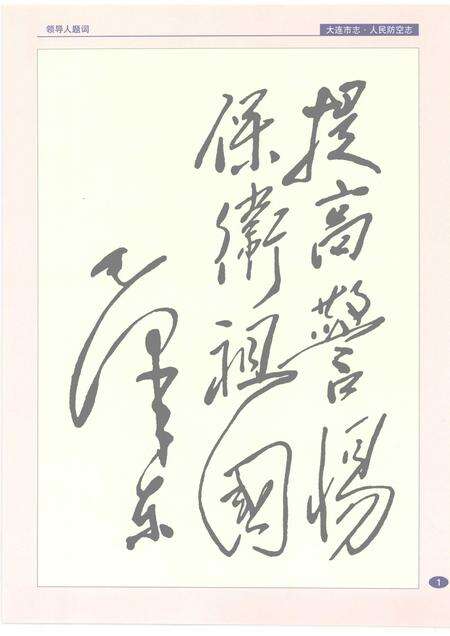 领导人题词
大连市志·人民防空志
提高警惕
保衛祖國
毛泽东
1